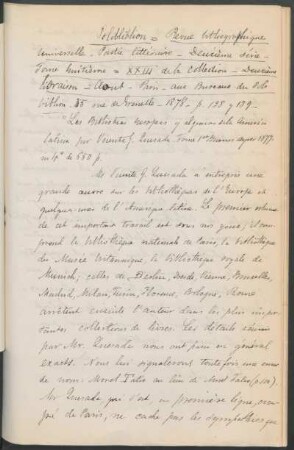 Polybiblion = Revue bibliographique
universelle - Partie littéraire - Deuxième série -
Tome huitième = XXIII de la collection - Deuxième
livraison - Aout - Paris - aux Bureaux du Poly-
biblion 35 rue de Grenelle - 1878 - p. 128 y 129 -
"Las Bibliotecas europeas y algunas de la America
Latina por Vicente G. Quesada. Tomo 1º Buenos Ayres 1877.
in 4º de 650 p.
M. Vicente G. Quesada a entrepris une
grande œuvre sur les bibliothèques de l'Europe et
quelques unes de l'Amérique latine. Le premier volume
de cet important travail est sous nos yeux; il com-
prend la bibliothèque nationale de Paris, la bibliothèque
du Musée britannique, la bibliothèque royale de
Munich; celles de Berlin, Dresde, Vienne, Bruxelles,
Madrid, Milan, Turin, Florence, Bologne, Rome
arrêtent ensuite l'auteur dans les plus impor-
tantes collections de livres. Les détails donnés
par Mr. Quesada nous ont paru en général
exacts. Nous lui signalerons toutefois une erreur
de nom: Morel Tatio au lieu de Morel Fatio (p.).
Mr Quesada qui s'est en première ligne, occu-
pé de Paris, ne cache pas les sympathies que